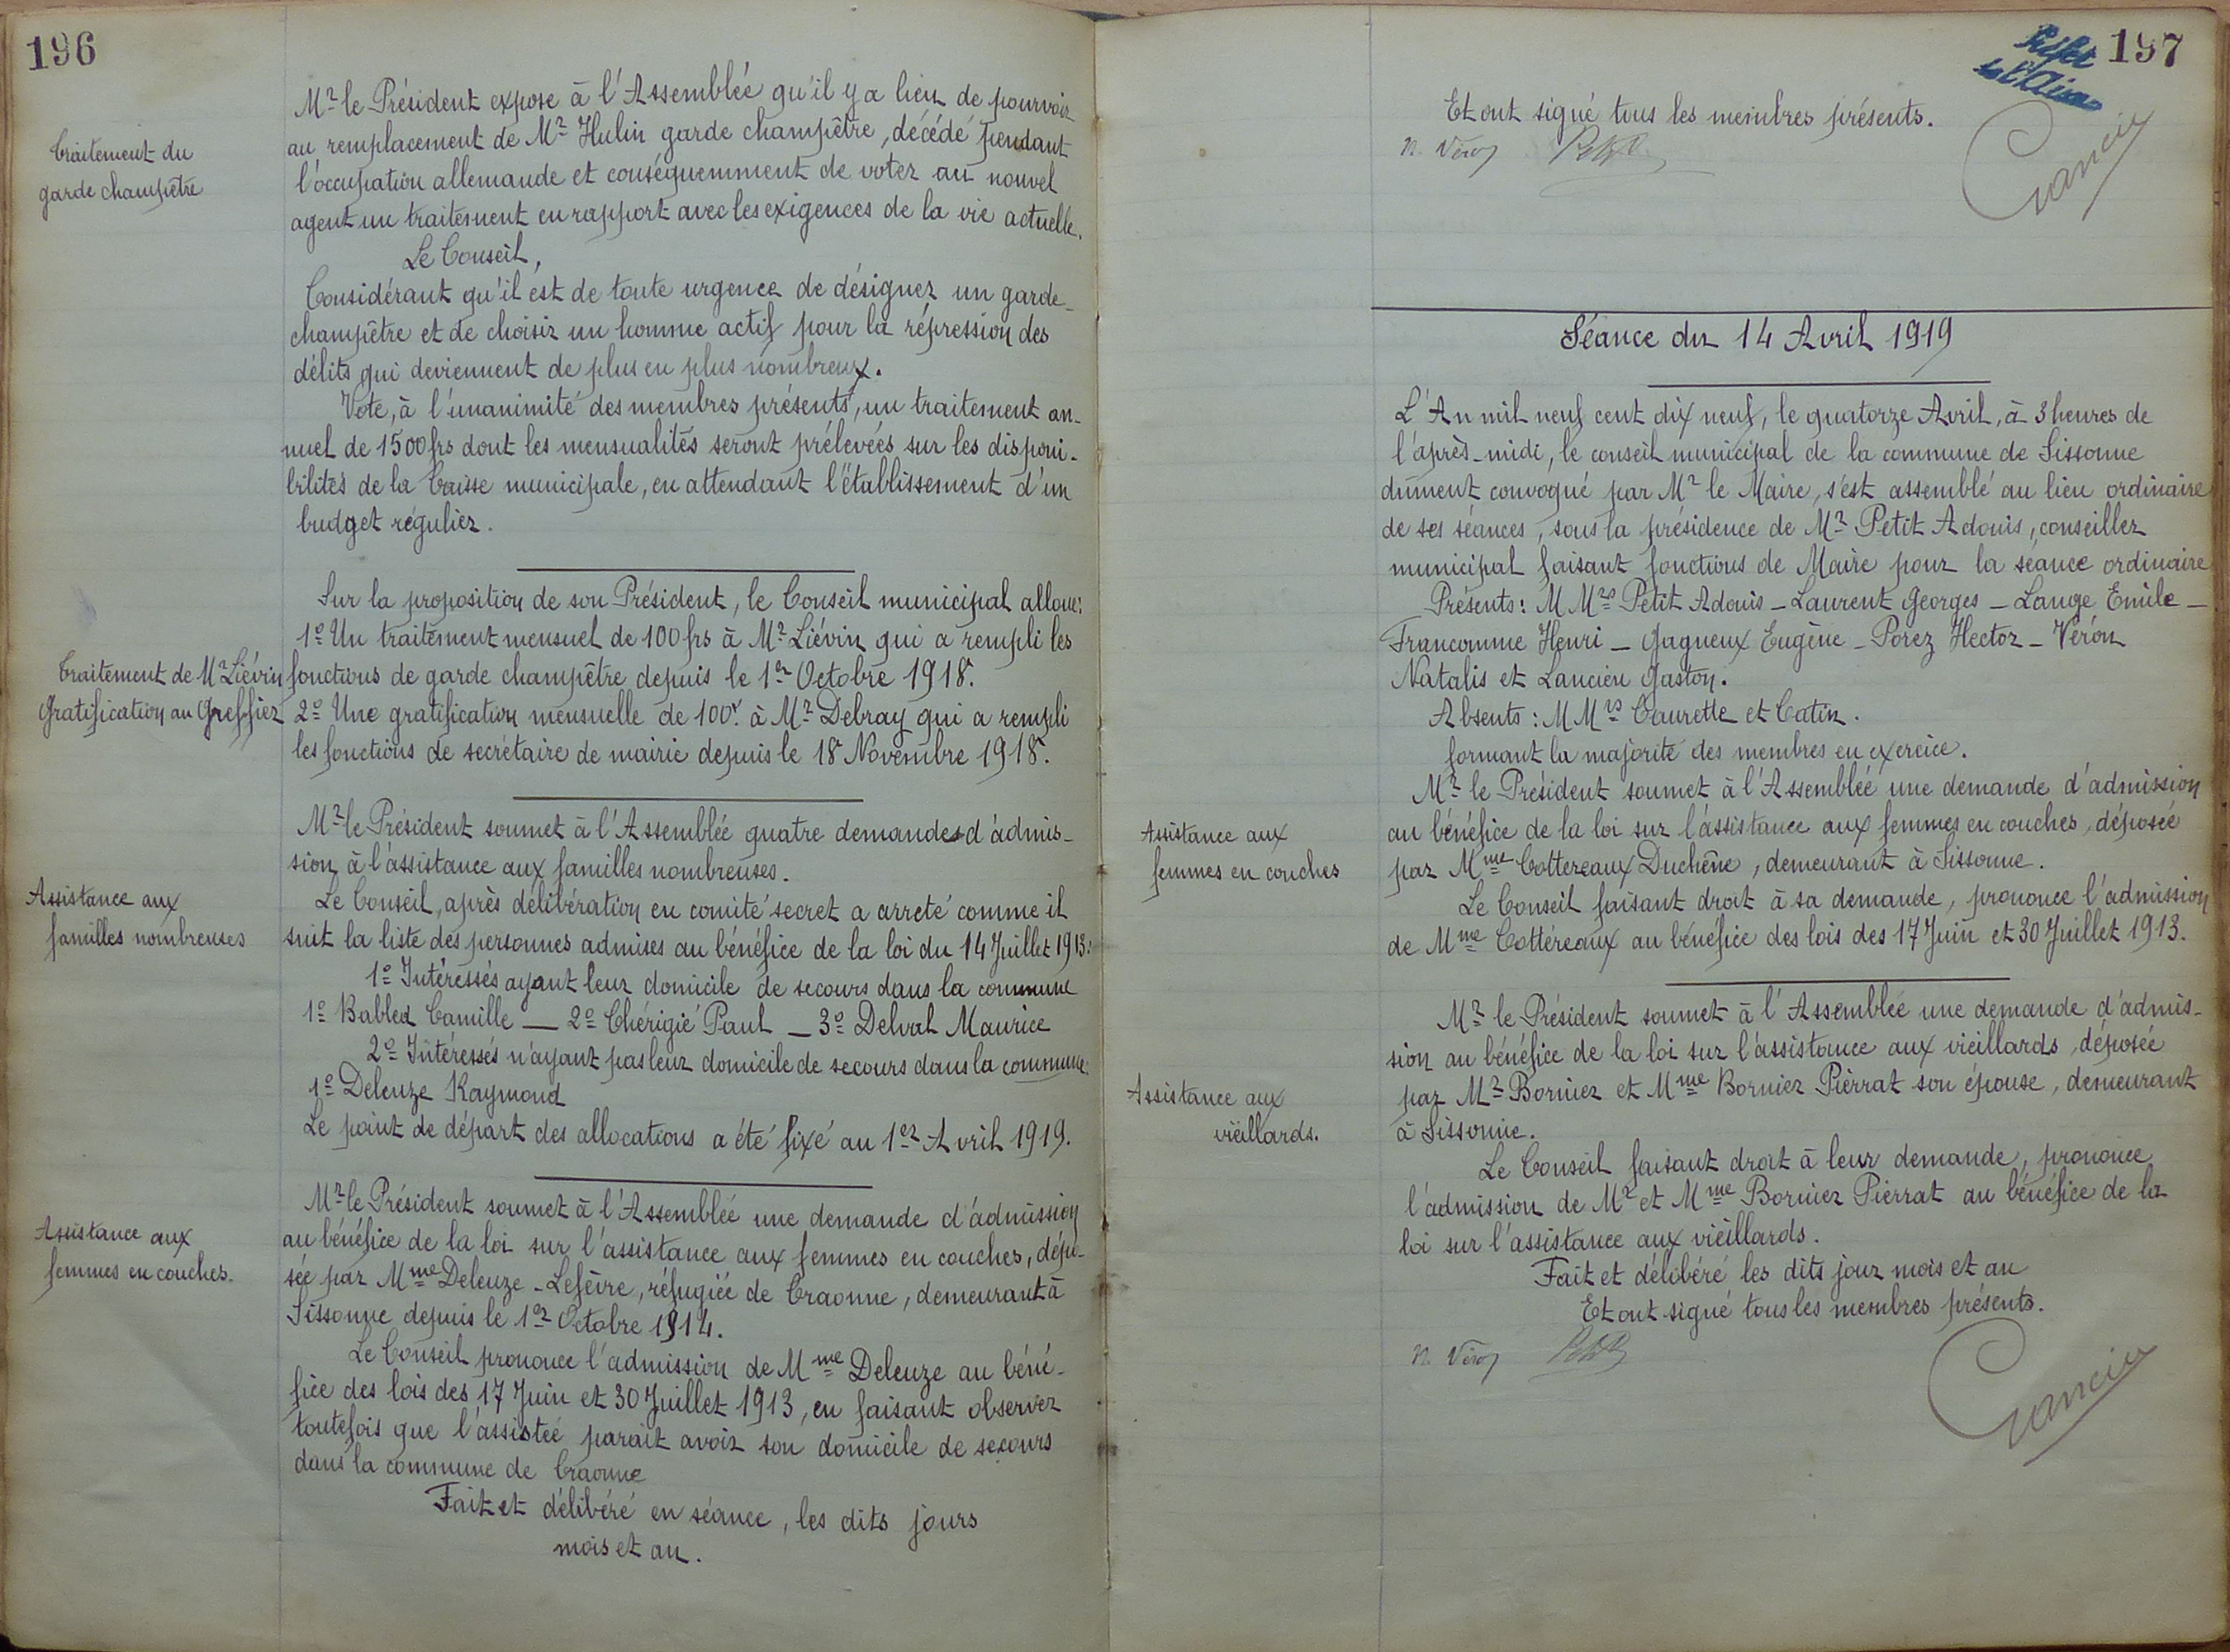 196
Mr le Président expose à l'Assemblée qu'il y a lieu de pourvoir
Traitement du
garde champêtre
au remplacement de Mr Hulin garde champêtre, décédé pendant
l'occupation allemande et conséquemment de voter au nouvel
agent un traitement en rapport avec les exigences de la vie actuelle.
Le Conseil,
Considérant qu'il est de toute urgence de désigner un garde-
champêtre et de choisir un homme actif pour la répression des
délits qui deviennent de plus en plus nombreux.
Vote, à l'unanimité des membres présents, un traitement an-
nuel de 1500 frs dont les mensualités seront prélevées sur les disponi-
bilités de la Caisse municipale, en attendant l'établissement d'un
budget régulier.
Sur la proposition de son Président, le Conseil municipal alloue:
1o Un traitement mensuel de 100 frs à Mr Liévin qui a rempli les
Traitement de Mr Liévin
Gratification au Greffier
fonctions de garde champêtre depuis le 1er Octobre 1918.
2o Une gratification mensuelle de 100f. à Mr Debray qui a rempli
les fonctions de secrétaire de mairie depuis le 18 Novembre 1918.
Mr le Président soumet à l'Assemblée quatre demandes d'admis-
sion à l'assistance aux familles nombreuses.
Assistance aux
familles nombreuses
Le Conseil, après délibération en comité secret a arreté comme il
suit la liste des personnes admises au bénéfice de la loi du 14 Juillet 1913:
1o Intéressés ayant leur domicile de secours dans la commune
1o Babled Camille — 2o Chérigié Paul — 3o Delval Maurice
2o Intéressés n'ayant pas leur domicile de secours dans la commune:
1o Deleuze Raymond
Le point de départ des allocations a été fixé au 1er Avril 1919.
Mr le Président soumet à l'Assemblée une demande d'admission
Assistance aux
femmes en couches.
au bénéfice de la loi sur l'assistance aux femmes en couches, dépo-
sée par Mme Deleuze-Lefèvre, réfugiée de Craonne, demeurant à
Sissonne depuis le 1er Octobre 1914.
Le Conseil prononce l'admission de Mme Deleuze au béné-
fice des lois des 17 Juin et 30 Juillet 1913, en faisant observer
toutefois que l'assistée parait avoir son domicile de secours
dans la commune de Craonne
Fait et délibéré en séance, les dits jours
mois et an.
197
Préfet
de l'Aisne
Et ont signé tous les membres présents.
N. Véron Petit
Séance du 14 Avril 1919
L'An mil neuf cent dix neuf, le quatorze Avril, à 3 heures de
l'après-midi, le conseil municipal de la commune de Sissonne
dument convoqué par Mr le Maire, s'est assemblé au lieu ordinaire
de ses séances, sous la présidence de Mr Petit Adonis, conseiller
municipal faisant fonctions de Maire pour la séance ordinaire
Présents: M Mrs Petit Adonis - Laurent Georges - Lange Emile -
Francomme Henri - Gagneux Eugène - Porez Hector - Véron
Natalis et Lancien Gaston.
Absents: M Mrs Caurette et Catin.
formant la majorité des membres en exercice.
Mr le Président soumet à l'Assemblée une demande d'admission
Assistance aux
femmes en couches
au bénéfice de la loi sur l'assistance aux femmes en couches, déposée
par Mme Cottereaux Duchêne, demeurant à Sissonne.
Le Conseil faisant droit à sa demande, prononce l'admission
de Mme Cottéreaux au bénéfice des lois des 17 Juin et 30 Juillet 1913.
Mr le Président soumet à l'Assemblée une demande d'admis-
sion au bénéfice de la loi sur l'assistance aux vieillards, déposée
Assistance aux
vieillards.
par Mr Bornier et Mme Bornier Pierrat son épouse, demeurant
à Sissonne.
Le Conseil faisant droit à leur demande, prononce
l'admission de Mr et Mme Bornier Pierrat au bénéfice de la
loi sur l'assistance aux vieillards.
Fait et délibéré les dits jour mois et an
Et ont signé tous les membres présents.
N. Véron Petit